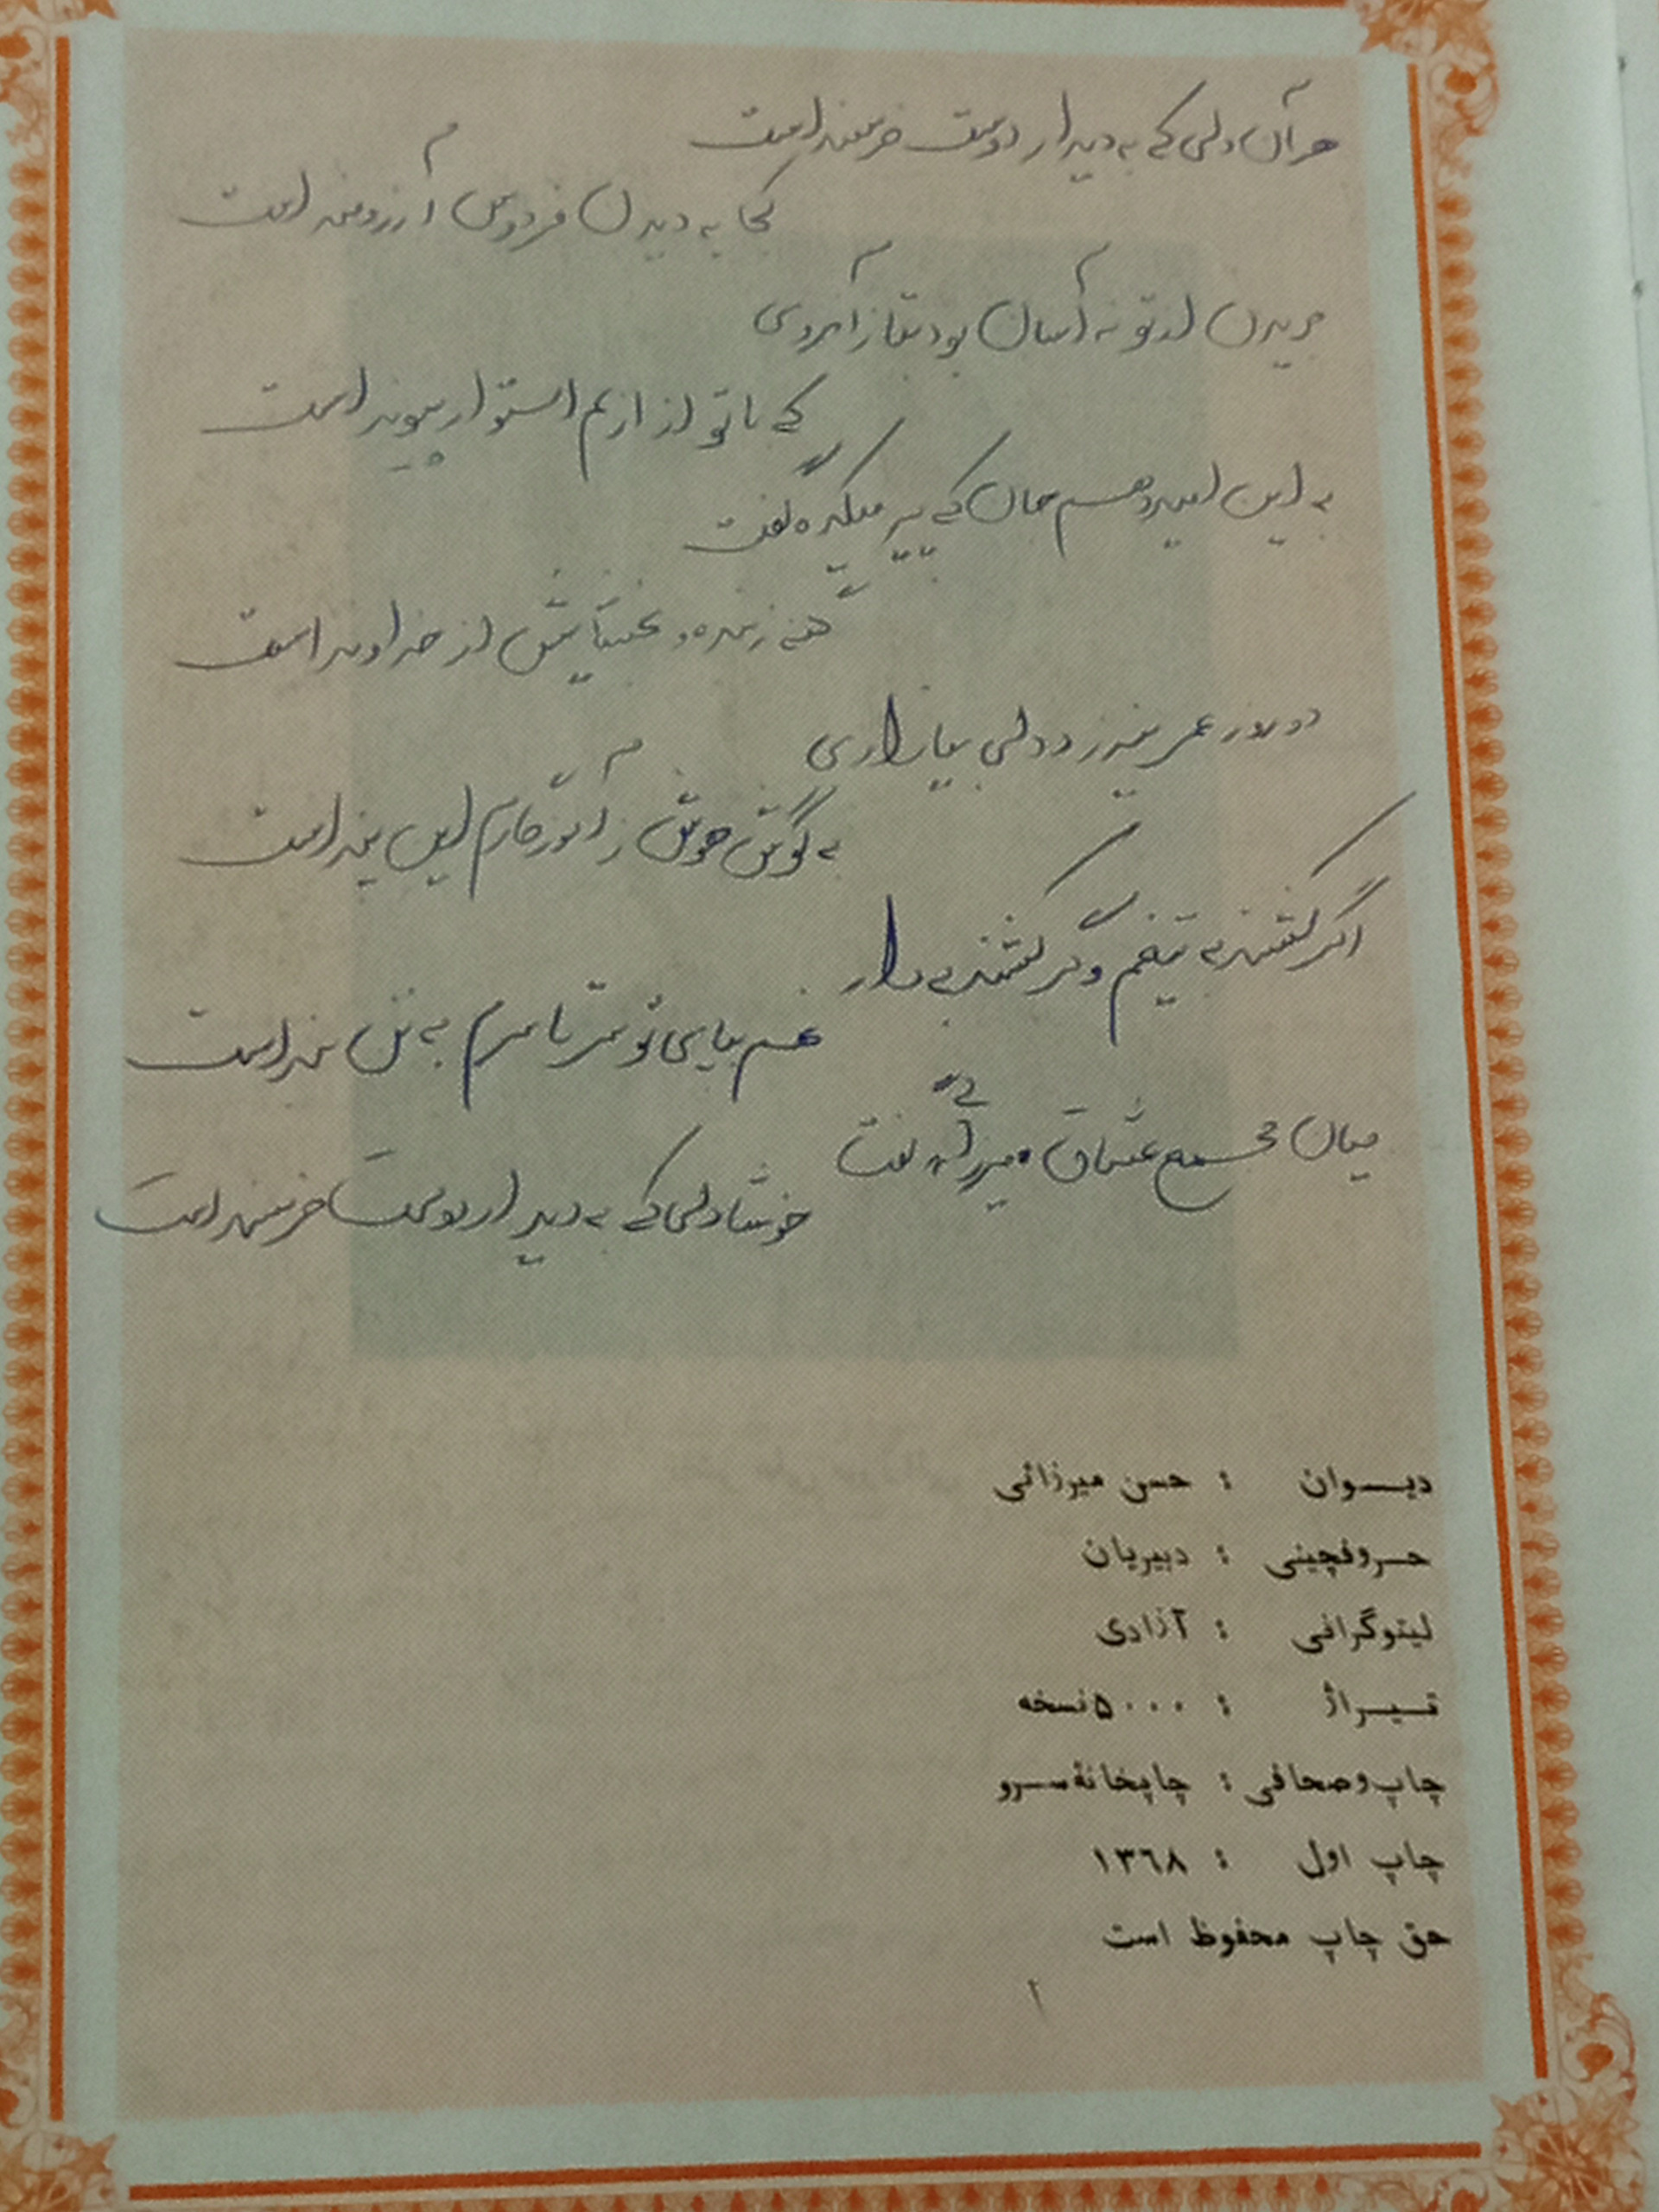 هر آن دلی که به دیدار دوست خرسند است
کجا به دیدن فردوس آرزومند است
بریدن از تو نه آسان بود بناز آبروی
که با تو از ازلم استوار پیوند است
به این امید دهم جان که پیر میکده گفت
گنه ز بنده و بخشایش از خداوند است
دو روز عمر نیرزد دلی بیازاری
به گوش هوش ز آموزگارم این پند است
اگر کشند به تیغم وگر کشند به دار
غم بپای تو سر تا سرم به تن بند است
میان مجمع عشاق میرزائی گفت
خوشا دلی که به دیدار دوست خرسند است
دیوان : حسن میرزائی
حروفچینی : دبیریان
لیتوگرافی : آزادی
تیراژ : ۵۰۰۰ نسخه
چاپ و صحافی : چاپخانهٔ سرو
چاپ اول : ۱۳۶۸
حق چاپ محفوظ است